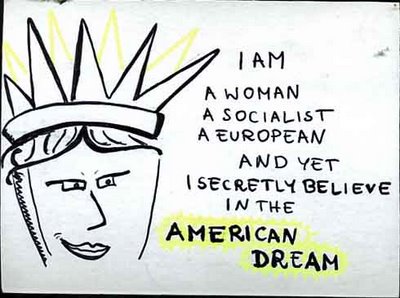 I AM
A WOMAN
A SOCIALIST
A EUROPEAN
AND YET
I SECRETLY BELIEVE
IN THE
AMERICAN
DREAM